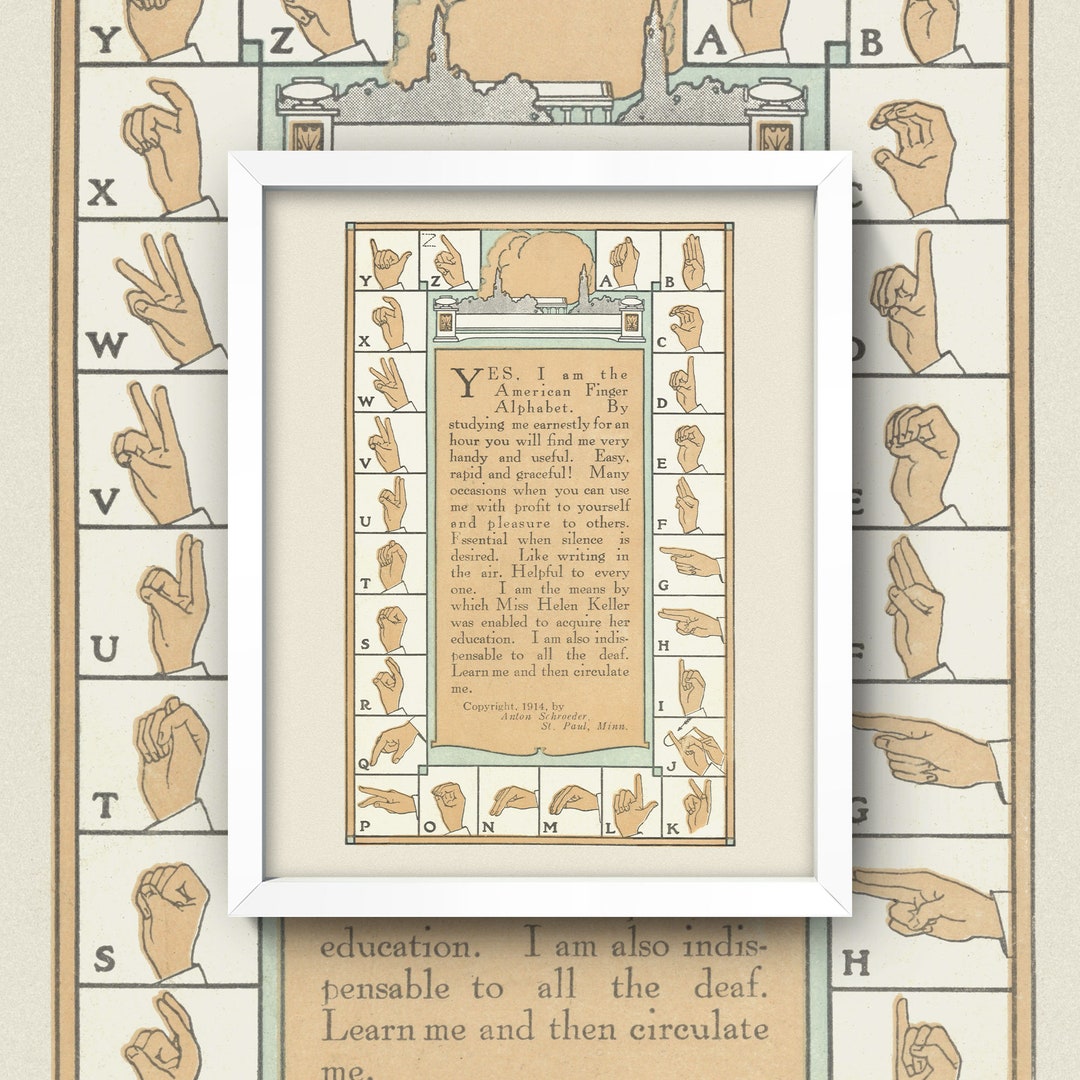 Y Z A B
X C
W D
V E
U F
T G
S H
Y Z Z A B
X C
W D
V E
U F
T G
S H
R I
Q J
P O N M L K
YES. I am the
American Finger
Alphabet. By
studying me earnestly for an
hour you will find me very
handy and useful. Easy,
rapid and graceful! Many
occasions when you can use
me with profit to yourself
and pleasure to others.
Essential when silence is
desired. Like writing in
the air. Helpful to every
one. I am the means by
which Miss Helen Keller
was enabled to acquire her
education. I am also indis-
pensable to all the deaf.
Learn me and then circulate
me.
Copyright, 1914, by
Anton Schroeder,
St. Paul, Minn.
education. I am also indis-
pensable to all the deaf.
Learn me and then circulate
me.